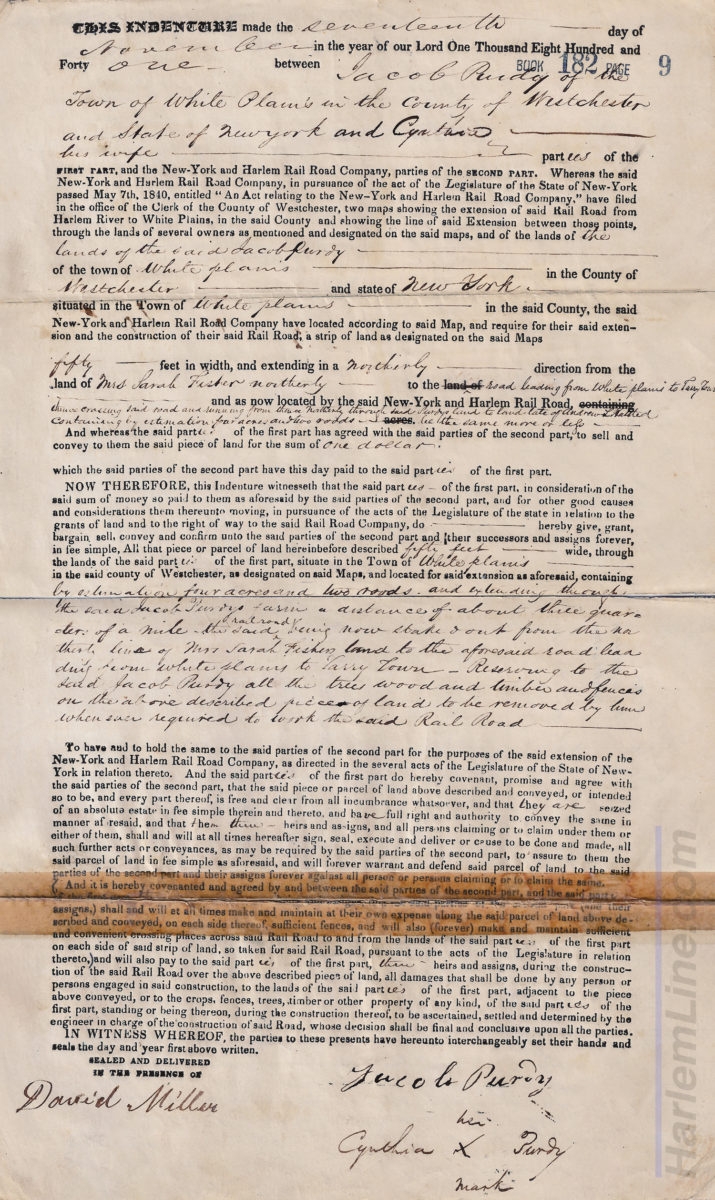 THIS INDENTURE made the seventeenth day of
November in the year of our Lord One Thousand Eight Hundred and
Forty One between Jacob Purdy of the
BOOK 182 PAGE 9
Town of White Plains in the County of Westchester
and State of New york and Cynthia
his wife parties of the
FIRST PART, and the New-York and Harlem Rail Road Company, parties of the SECOND PART. Whereas the said
New-York and Harlem Rail Road Company, in pursuance of the act of the Legislature of the State of New-York
passed May 7th, 1840, entitled "An Act relating to the New-York and Harlem Rail Road Company," have filed
in the office of the Clerk of the County of Westchester, two maps showing the extension of said Rail Road from
Harlem River to White Plains, in the said County and showing the line of said Extension between those points,
through the lands of several owners as mentioned and designated on the said maps, and of the lands of the
lands of the said Jacob Purdy
of the town of White plains in the County of
Westchester and state of New York.
situated in the Town of White plains in the said County, the said
New-York and Harlem Rail Road Company have located according to said Map, and require for their said exten-
sion and the construction of their said Rail Road, a strip of land as designated on the said Maps
fifty feet in width, and extending in a northerly direction from the
land of Mrs Sarah Fisher northerly to the land of road leading from White plains to Tarry Town
and as now located by the said New-York and Harlem Rail Road, containing
thence crossing said road and running from thence northerly through said Purdys land to land late of
containing by estimation four acres and two roods acres, be the same more or less
And whereas the said parties of the first part has agreed with the said parties of the second part, to sell and
convey to them the said piece of land for the sum of One dollar.
which the said parties of the second part have this day paid to the said parties of the first part.
NOW THEREFORE, this Indenture witnesseth that the said parties of the first part, in consideration of the
said sum of money so paid to them as aforesaid by the said parties of the second part, and for other good causes
and considerations them thereunto moving, in pursuance of the acts of the Legislature of the state in relation to the
grants of land and to the right of way to the said Rail Road Company, do hereby give, grant,
bargain, sell, convey and confirm unto the said parties of the second part and their successors and assigns forever,
in fee simple, All that piece or parcel of land hereinbefore described fifty feet wide, through
the lands of the said parties of the first part, situate in the Town of White plains
in the said county of Westchester, as designated on said Maps, and located for said extension as aforesaid, containing
by estimation four acres and two roods. and extending through
the said Jacob Purdys farm a distance of about three quar-
ters of a mile the said rail road being now staked out from the nor
therly line of Mrs Sarah Fishers land to the aforesaid road lea
ding from White plains to Tarry Town Reserving to the
said Jacob Purdy all the trees wood and timber and fences
on the above described piece of land to be removed by him
when so required to work the said Rail Road
To have and to hold the same to the said parties of the second part for the purposes of the said extension of the
New-York and Harlem Rail Road Company, as directed in the several acts of the Legislature of the State of New-
York in relation thereto. And the said parties of the first part do hereby covenant, promise and agree with
the said parties of the second part, that the said piece or parcel of land above described and conveyed, or intended
so to be, and every part thereof, is free and clear from all incumbrance whatsoever, and that they are seized
of an absolute estate in fee simple therein and thereto, and have full right and authority to convey the same in
manner aforesaid, and that heirs and assigns, and all persons claiming or to claim under them or
either of them, shall and will at all times hereafter sign, seal, execute and deliver or cause to be done and made, all
such further acts or conveyances, as may be required by the said parties of the second part, to assure to them the
said parcel of land in fee simple as aforesaid, and will forever warrant and defend said parcel of land to the said
parties of the second part and their assigns forever against all person or persons claiming or to claim the same.
And it is hereby covenanted and agreed by and between the said parties of the second part, and the said parties
assigns,) shall and will at all times make and maintain at their own expense along the said parcel of land above de-
scribed and conveyed, on each side thereof, sufficient fences, and will also (forever) make and maintain sufficient
and convenient crossing places across said Rail Road to and from the lands of the said parties of the first part
on each side of said strip of land, so taken for said Rail Road, pursuant to the acts of the Legislature in relation
thereto,) and will also pay to the said parties of the first part, their heirs and assigns, during the construc-
tion of the said Rail Road over the above described piece of land, all damages that shall be done by any person or
persons engaged in said construction, to the lands of the said parties of the first part, adjacent to the piece
above conveyed, or to the crops, fences, trees, timber or other property of any kind, of the said parties of the
first part, standing or being thereon, during the construction thereof, to be ascertained, settled and determined by the
engineer in charge of the construction of said Road, whose decision shall be final and conclusive upon all the parties.
IN WITNESS WHEREOF, the parties to these presents have hereunto interchangeably set their hands and
seals the day and year first above written.
SEALED AND DELIVERED
IN THE PRESENCE OF
David Miller
Jacob Purdy
her
Cynthia X Purdy
mark
Harlemline.com